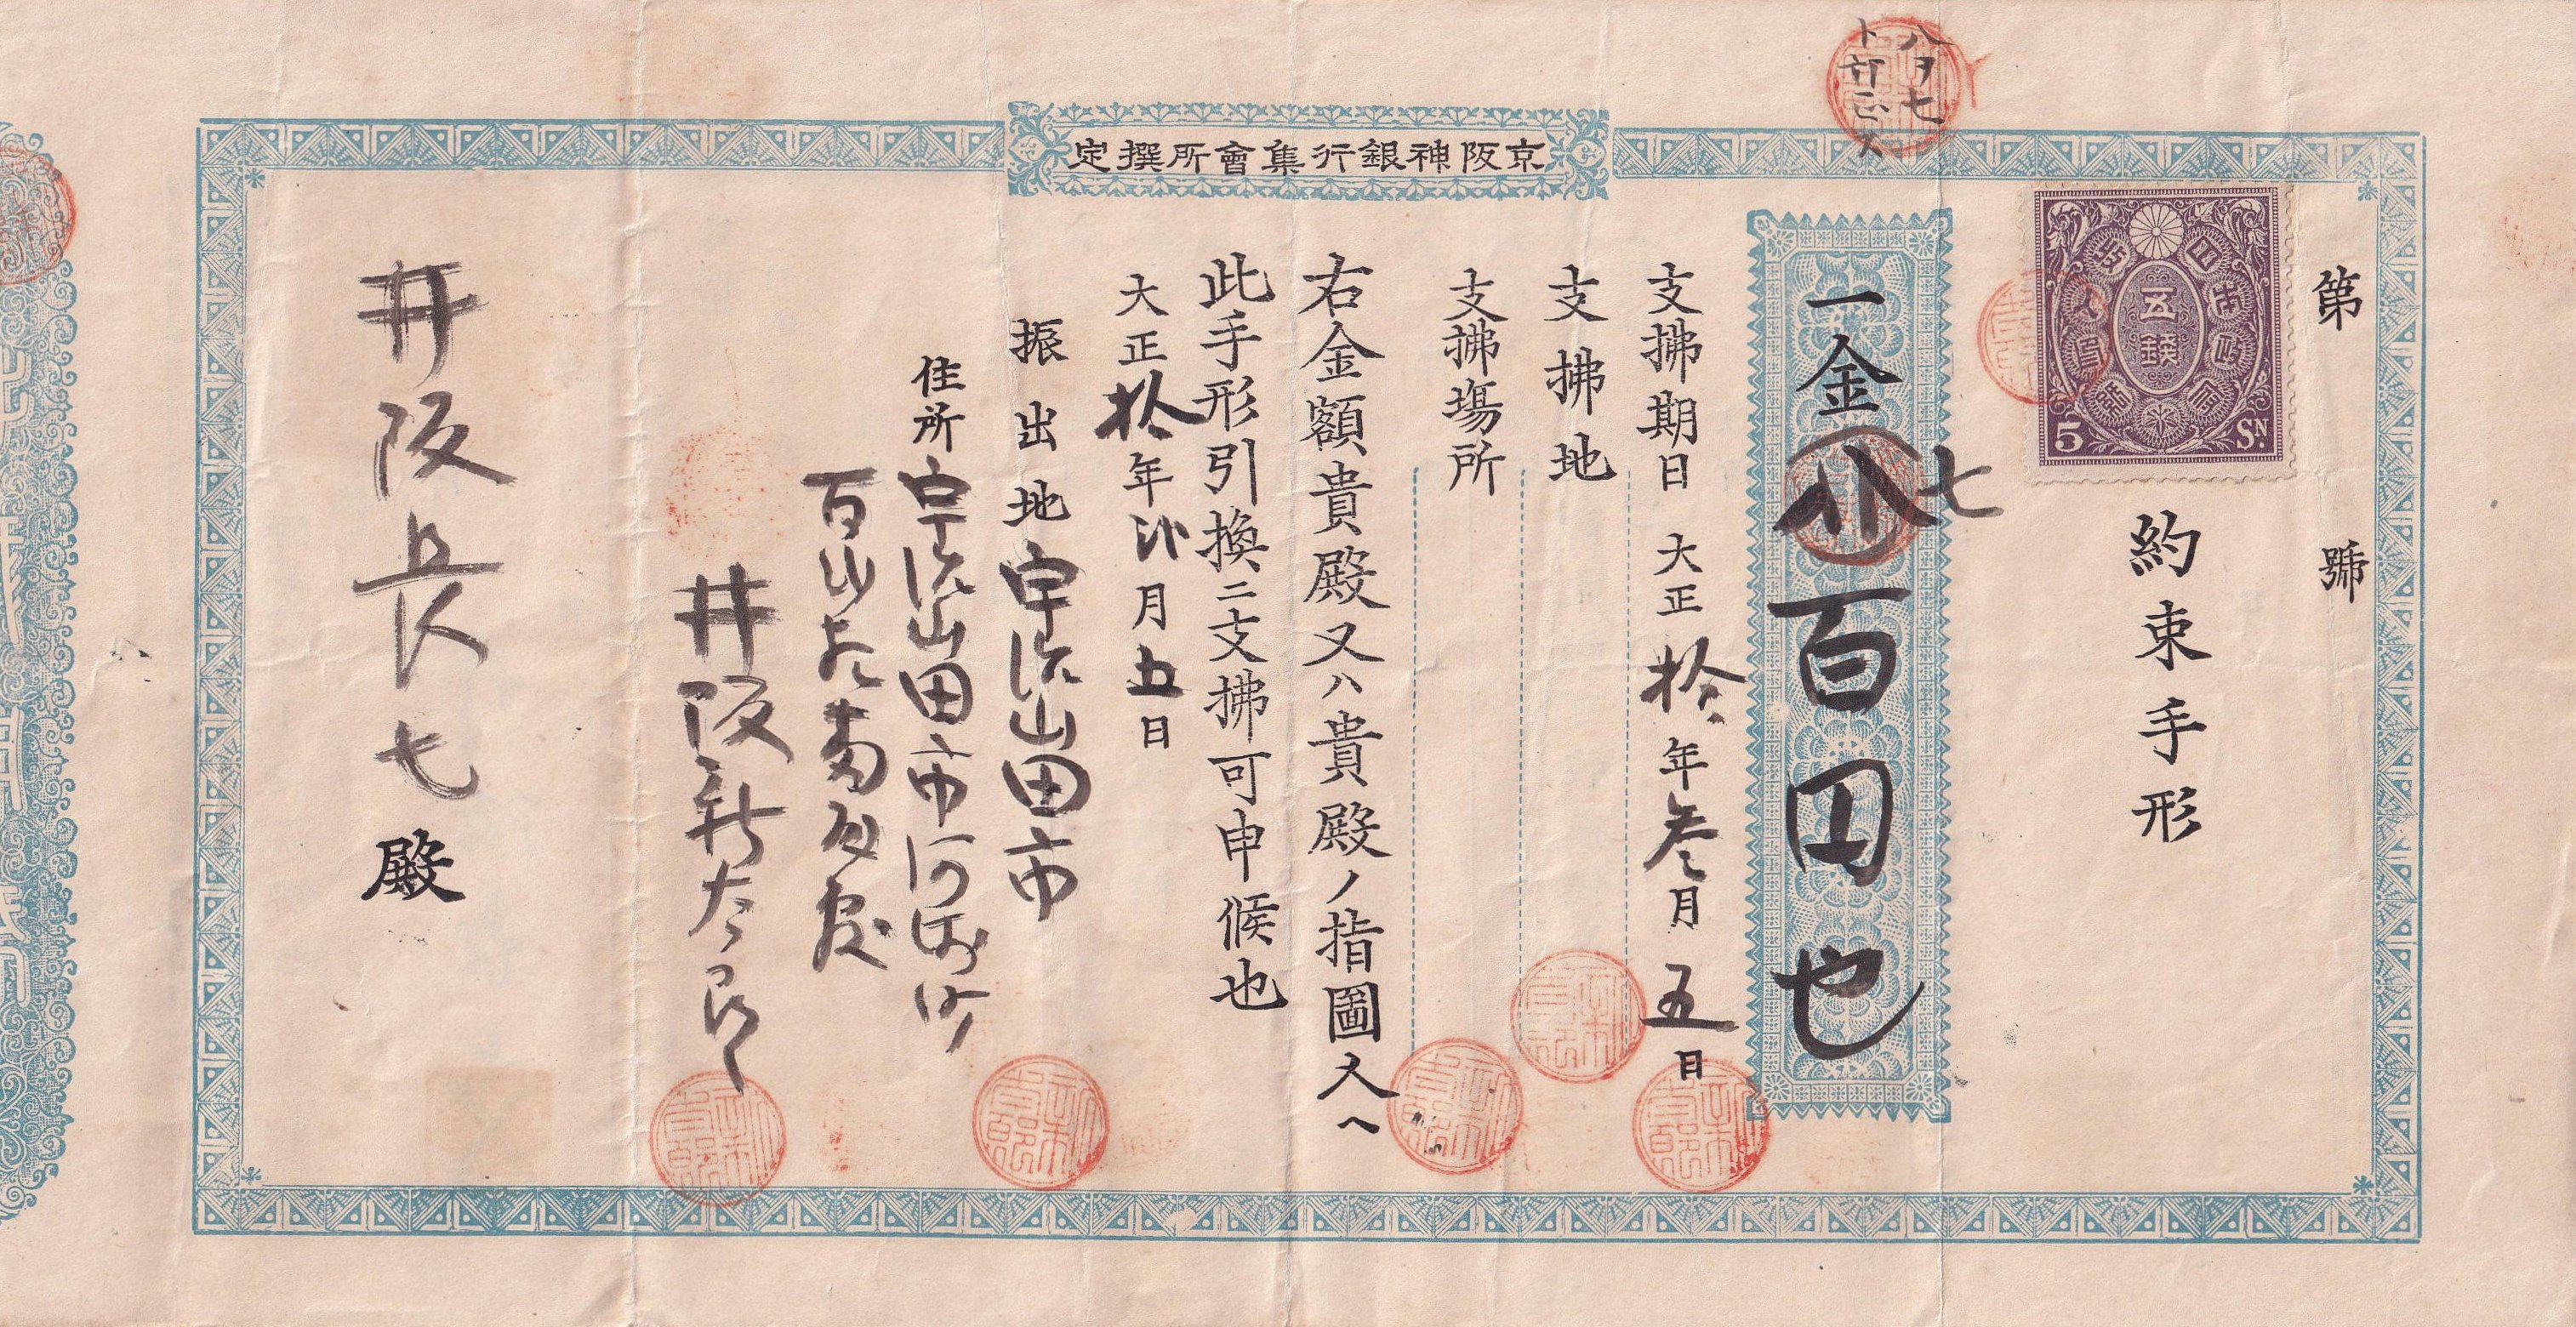 京阪神銀行集會所撰定
第 號
約束手形
八ヲ七
ト訂正ス
5 SN.
五錢
一金八百円也
七
支拂期日 大正拾年叁月五日
支拂地
支拂塲所
右金額貴殿又ハ貴殿ノ指圖人ヘ
此手形引換ニ支拂可申候也
大正拾年 月五日
振出地 宇治山田市
住所 宇治山田市河崎町
百 番
井阪新太郎
井阪長七殿